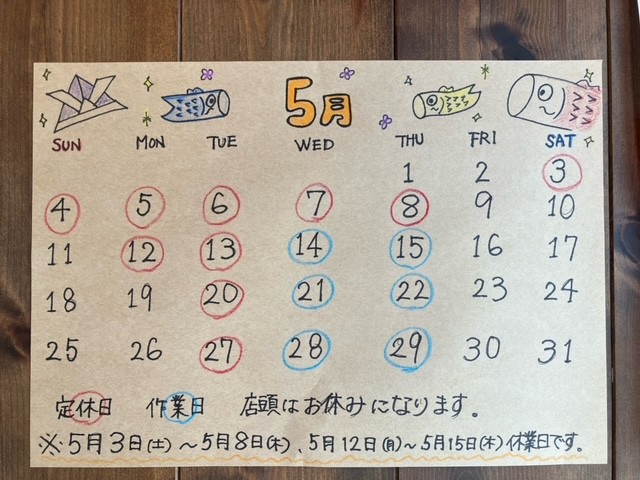 5月
SUN MON TUE WED THU FRI SAT
1 2 3
4 5 6 7 8 9 10
11 12 13 14 15 16 17
18 19 20 21 22 23 24
25 26 27 28 29 30 31
定休日 作業日 店頭はお休みになります。
※5月3日(土)～5月8日(木)、5月12日(月)～5月15日(木)休業日です。